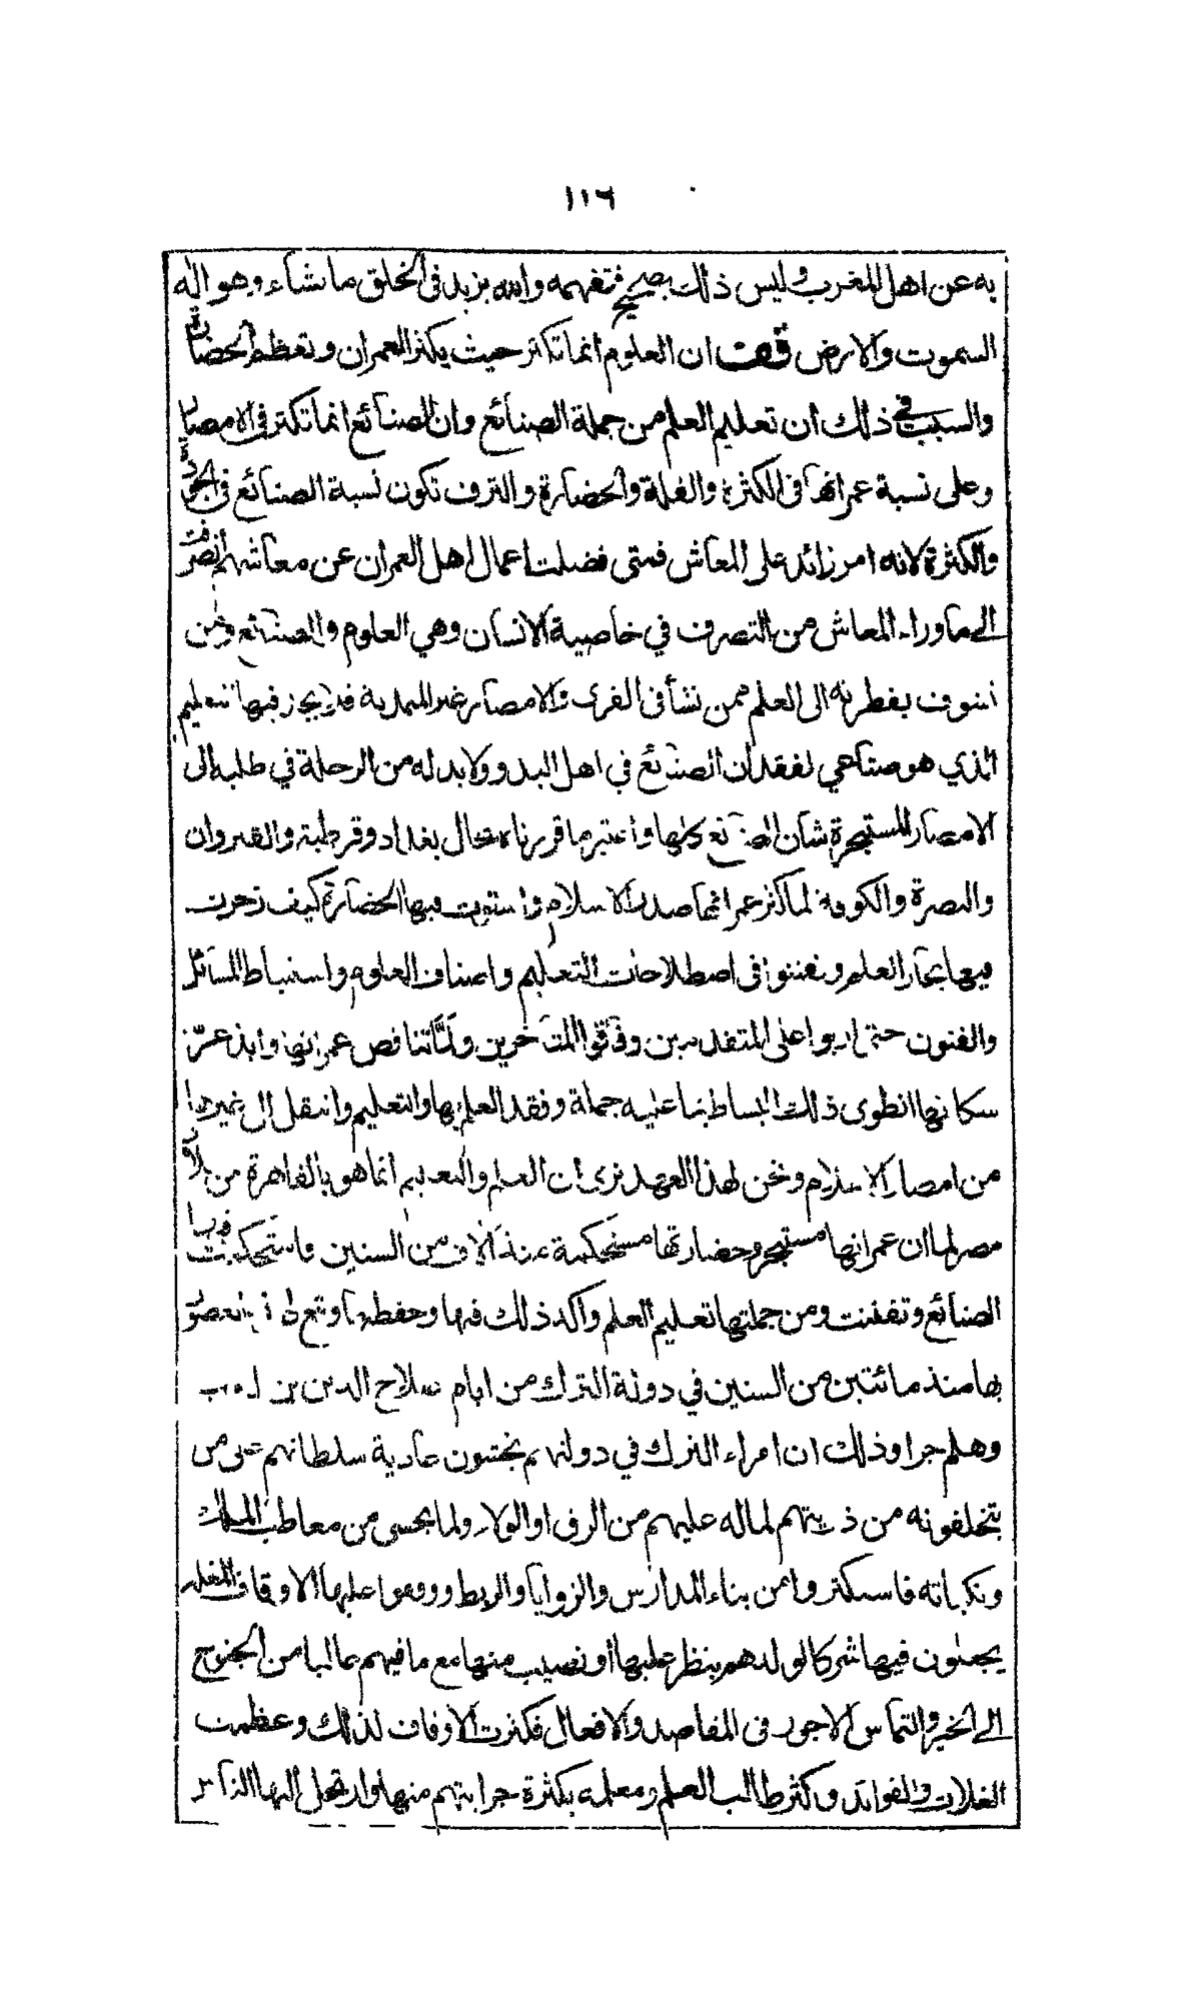 ١١٦
به عن اهل المغرب وليس ذلك بصحيح فتفهمه والله يزيد في الخلق ما يشاء وهو اله
السموت والارض قف ان العلوم انما تكثر حيث يكثر العمران وتعظم الحضارة
والسبب في ذلك ان تعليم العلم من جملة الصنائع وان الصنائع انما تكثر في الامصار
وعلى نسبة عمرانها في الكثرة والقلة والحضارة والترف تكون نسبة الصنائع في الجودة
والكثرة لانه امر زائد على المعاش فمتى فضلت اعمال اهل العمران عن معاشهم انصرفت
الى ماوراء المعاش من التصرف في خاصية الانسان وهي العلوم والصنائع ومن
تشوف بفطرته الى العلم ممن نشأ في القرى والامصار غير المتمدنة فلا يجد فيها التعليم
الذي هو صناعي لفقدان الصنائع في اهل البدو ولا بد له من الرحلة في طلبه الى
الامصار المستبحرة شأن الصنائع كلها واعتبر ما قررناه بحال بغداد وقرطبة والقيروان
والبصرة والكوفة لما كثر عمرانها صدر الاسلام واستوت فيها الحضارة كيف زخرت
فيها بحار العلم وتفننوا في اصطلاحات التعليم واصناف العلوم واستنباط المسائل
والفنون حتى اربوا على المتقدمين وفاقوا المتأخرين ولما تناقص عمرانها وابذعر
سكانها انطوى ذلك البساط بما عليه جملة وفقد العلم بها والتعليم وانتقل الى غيرها
من امصار الاسلام ونحن لهذا العهد نرى ان العلم والتعليم انما هو بالقاهرة من بلاد
مصر لما ان عمرانها مستبحر وحضارتها مستحكمة منذ آلاف من السنين فاستحكمت فيها
الصنائع وتفننت ومن جملتها تعليم العلم واكد ذلك فيها وحفظه ما وقع لهذه العصور
بها منذ مائتين من السنين في دولة الترك من ايام صلاح الدين بن ايوب
وهلم جرا وذلك ان امراء الترك في دولتهم يخشون عادية سلطانهم على من
يتخلفونه من ذريتهم لما له عليهم من الرق او الولاء ولما يخشى من معاطب الملك
ونكباته فاستكثروا من بناء المدارس والزوايا والربط ووقفوا عليها الاوقاف المغلة
يجعلون فيها شركا لولدهم ينظر عليها او نصيب منها مع ما فيهم غالبا من الجنوح
الى الخير والتماس الاجور في المقاصد والافعال فكثرت الاوقاف لذلك وعظمت
الغلات والفوائد وكثر طالب العلم ومعلمه بكثرة جرايتهم منها وارتحل اليها الناس